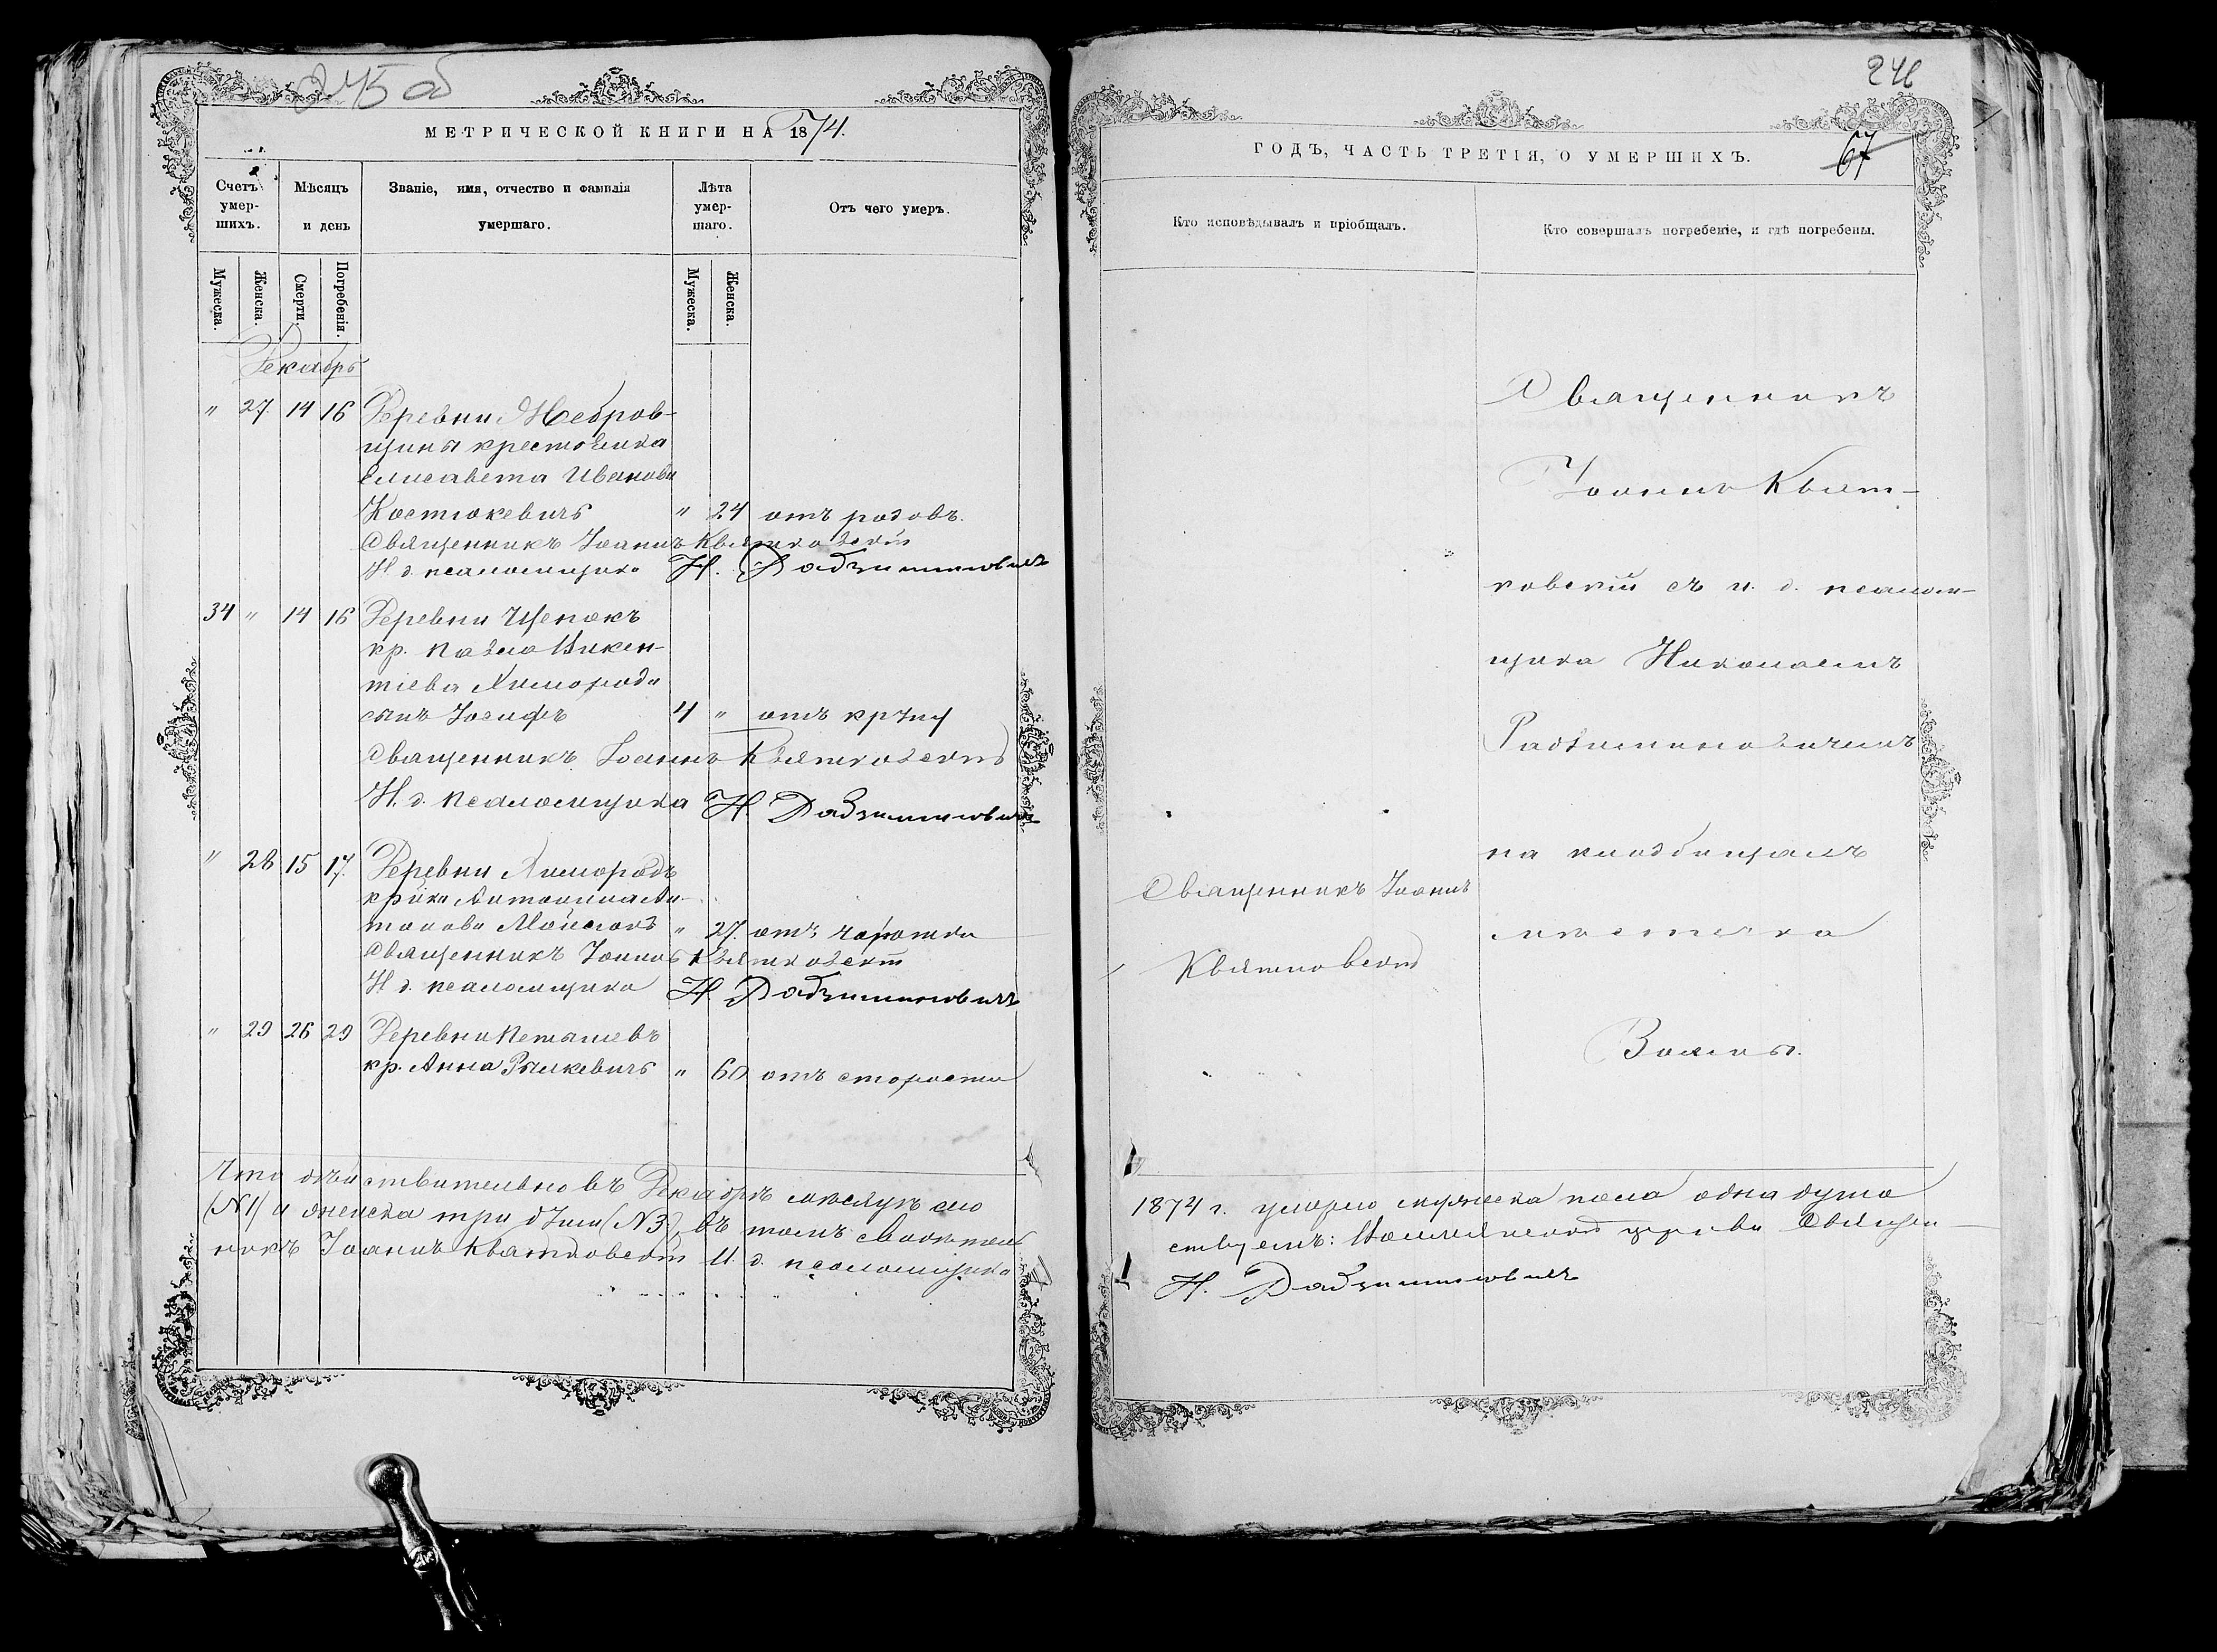 245 об
МЕТРИЧЕСКОЙ КНИГИ НА 1874.
Счетъ умер-шихъ.
Мѣсяцъ и день
Званіе, имя, отчество и фамилія умершаго.
Лѣта умер-шаго.
Отъ чего умеръ.
Мужеска.
Женска.
Смерти.
Погребенія.
Мужеска.
Женска.
Декабрь
" 27. 14 16 Деревни
щины крестьянка
Елисавета Иванова
Костюкевичъ " 24 отъ родовъ.
Священникъ Іоаннъ Квятковскій
И д. псаломщика Н. Радзиминовичъ
34 " 14 16 Деревни Щепокъ
кр. Павла Викен-
тіева
сынъ Іосифъ 4 " отъ крупу
Священникъ Іоаннъ Квятковскій
И. д. псаломщика Н. Радзиминовичъ
" 28 15 17. Деревни
Антонина Ан-
тонова " 27. отъ
Священникъ Іоаннъ Квятковскій
И д. псаломщика Н. Радзиминовичъ
" 29 26 29 Деревни
кр. Анна " 60 отъ старости
Что дѣйствительно въ Декабрѣ мѣсяцѣ сего
(№1) а женска три души (№3), въ томъ свидѣтель
никъ Іоаннъ Квятковскій И. д. псаломщика
246
67
ГОДЪ, ЧАСТЬ ТРЕТІЯ, О УМЕРШИХЪ.
Кто исповѣдывалъ и пріобщалъ.
Кто совершалъ погребеніе, и гдѣ погребены.
Священникъ
Іоаннъ Квят-
ковскій съ и. д. псалом-
щика Николаемъ
Радзиминовичемъ
на кладбищахъ
мѣстечка
Волмы.
Священникъ Іоаннъ
Квятковскій
1874 г. умерло мужеска пола одна душа
ствуемъ: Волмянской церкви Священ-
Н. Радзиминовичъ